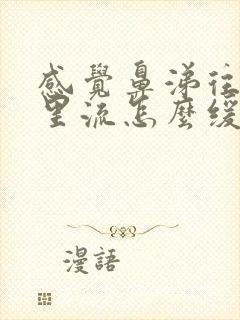 感覺鼻涕往
里流怎麼緩
漫語